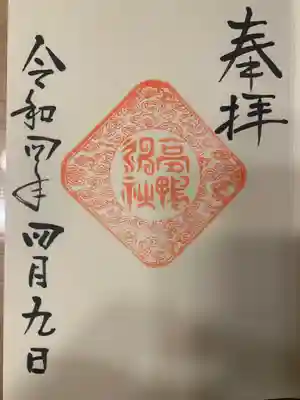 奉拝
高鴨神社
令和四年四月九日